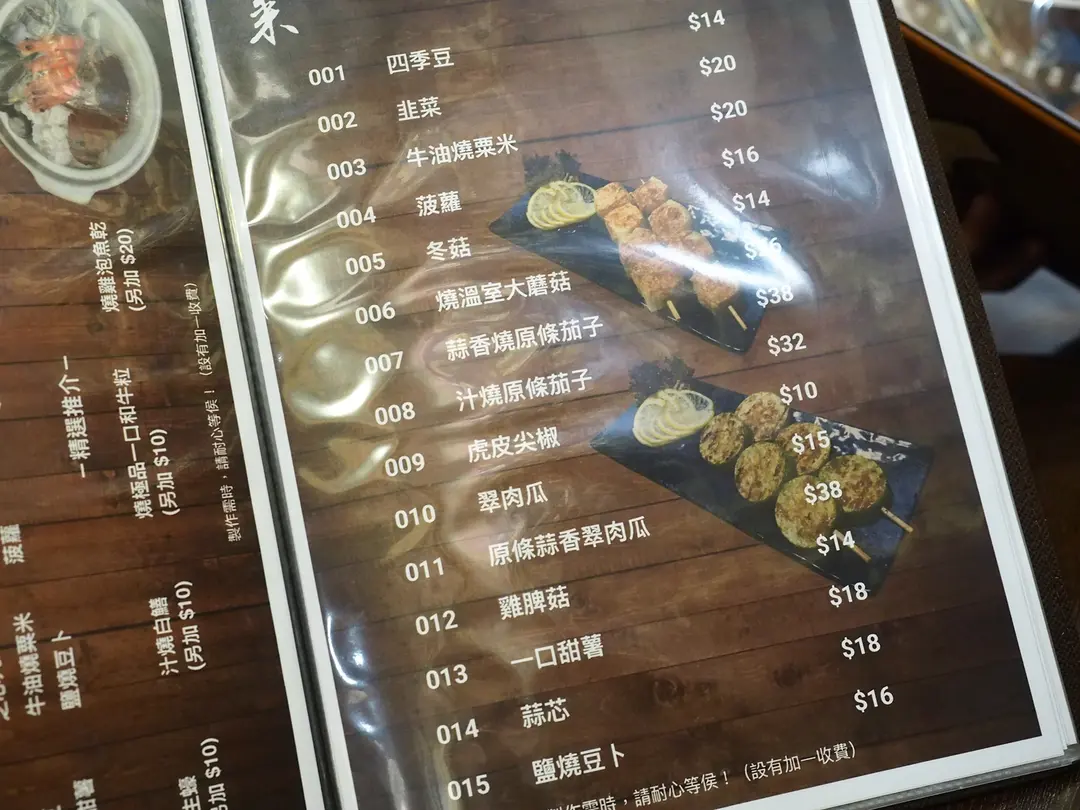 001 四季豆 $14
002 韭菜 $20
003 牛油燒粟米 $20
004 菠蘿 $16
005 冬菇 $14
006 燒溫室大蘑菇
007 蒜香燒原條茄子 $38
008 汁燒原條茄子 $32
009 虎皮尖椒 $10
010 翠肉瓜 $15
011 原條蒜香翠肉瓜 $38
012 雞脾菇 $14
013 一口甜薯 $18
014 蒜芯 $18
015 鹽燒豆卜 $16
製作需時，請耐心等侯！（設有加一收費）
燒雞泡魚乾
(另加 $20)
－精選推介－
燒極品一口和牛粒
(另加 $10)
汁燒白鱔
(另加 $10)
生蠔
另加 $10)
菠蘿
牛油燒粟米
鹽燒豆卜
甜薯
製作需時，請耐心等侯！（設有加一收費）